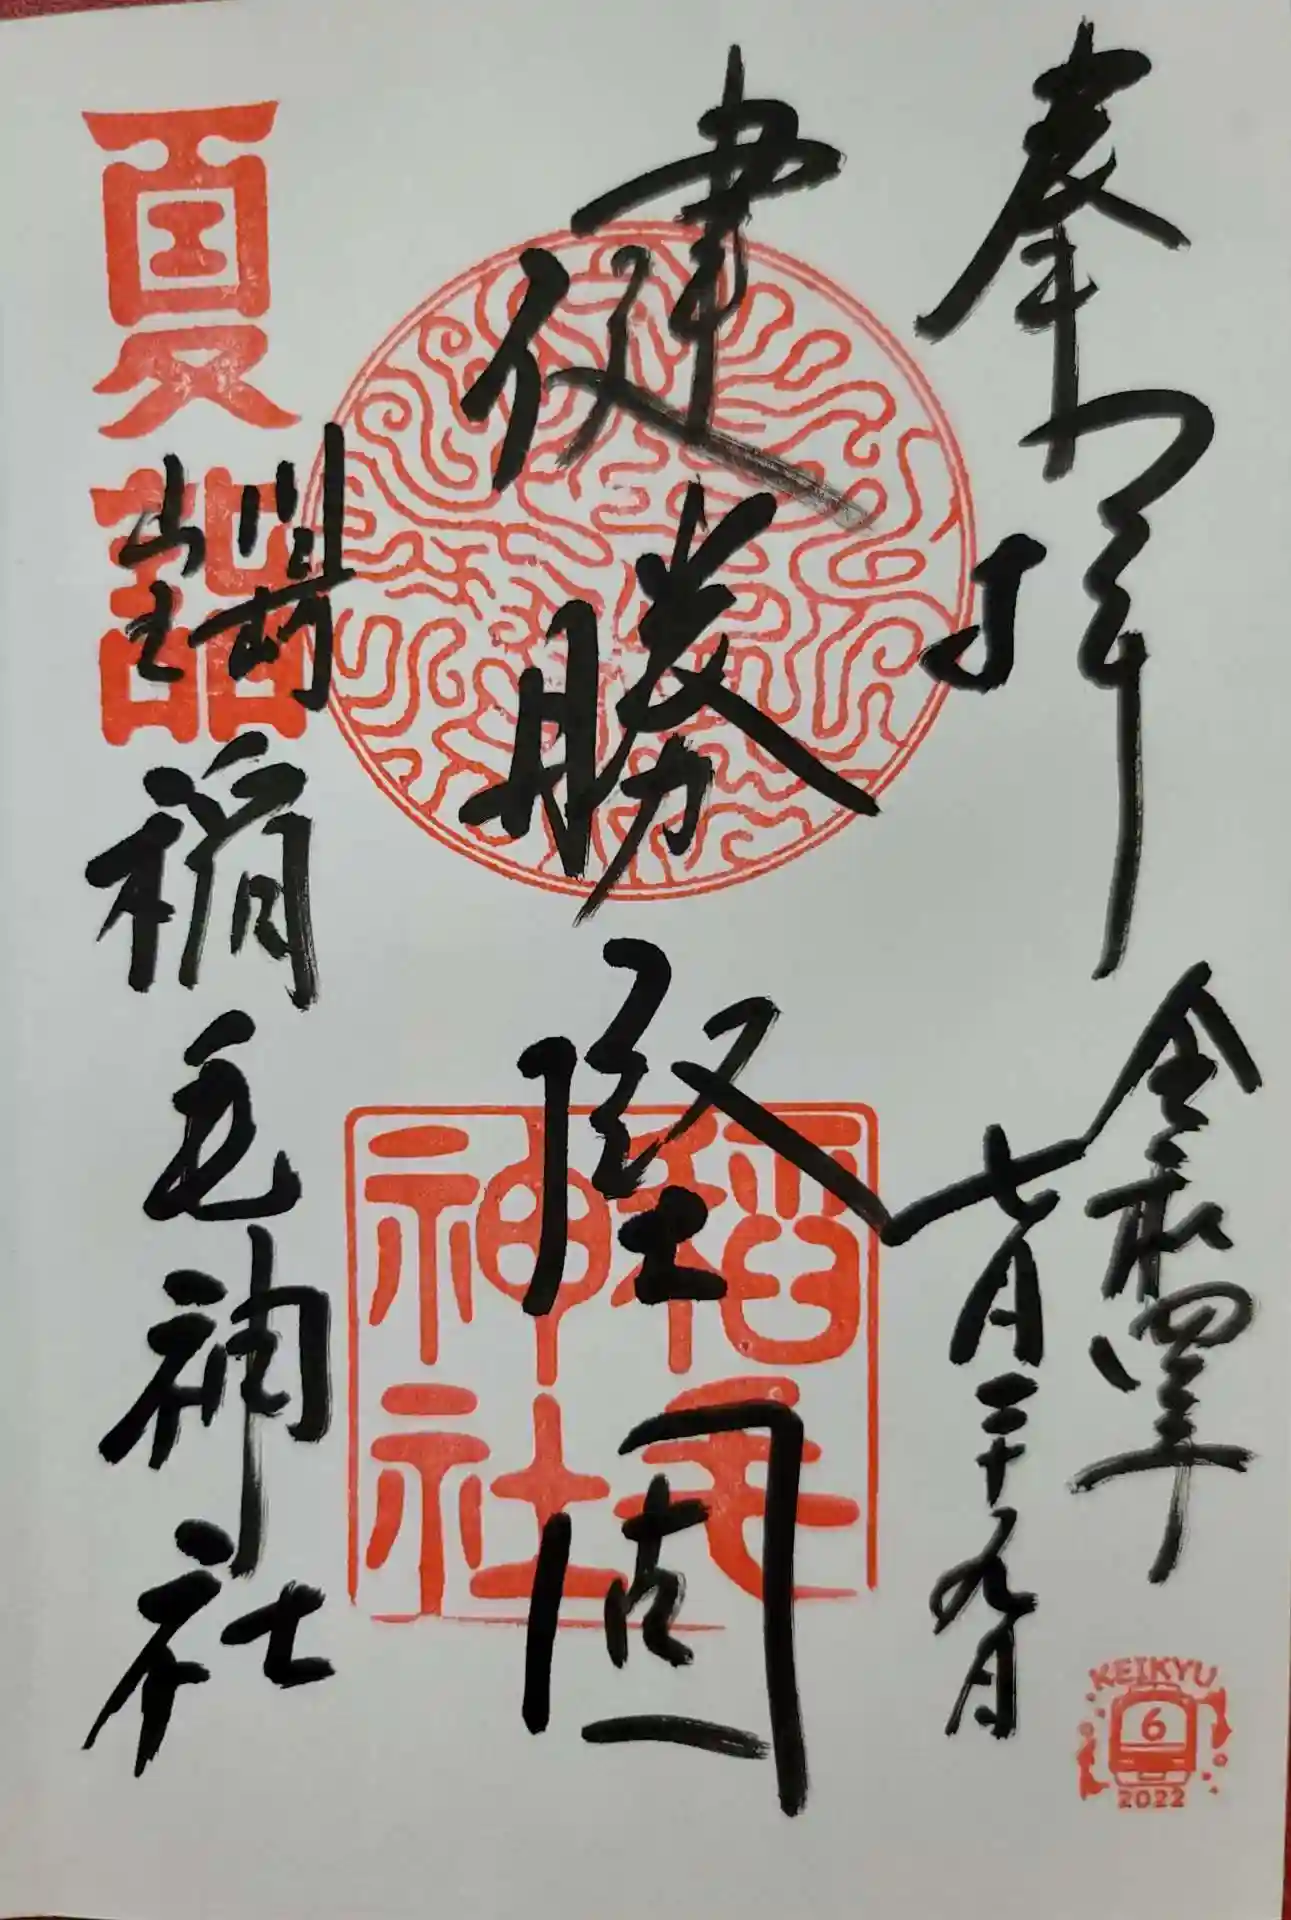 奉拝
令和四年
七月二十九日
健勝堅固
川崎
山王
稲毛神社
夏詣
稲毛
神社
KEIKYU
6
2022